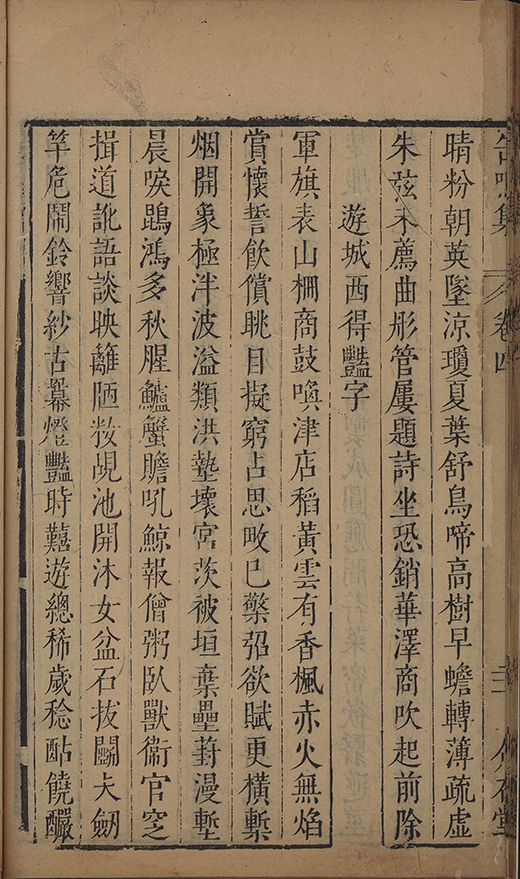 晴粉朝英墜涼瓊夏葉舒鳥啼高樹早蟾轉薄疏虛
朱弦未薦曲彤管屢題詩坐恐銷華澤商吹起前除
遊城西得豔字
軍旗表山柵商鼓喚津店稻黃雲有香楓赤火無焰
賞懷誓飲償眺目擬窮占思敃巳檠弨欲賦更橫槧
烟開象極泮波溢類洪墊壞宮茨被垣棄壘葑漫塹
晨唳鵾鴻多秋腥鱸蟹膽吼鯨報僧粥臥獸衞官窆
揖道訛語談映籬陋粧覘池開沐女盆石拔鬭夫劒
竿危鬧鈴響紗古幕燈豔時囏遊總稀歲稔酟饒釅
卷四